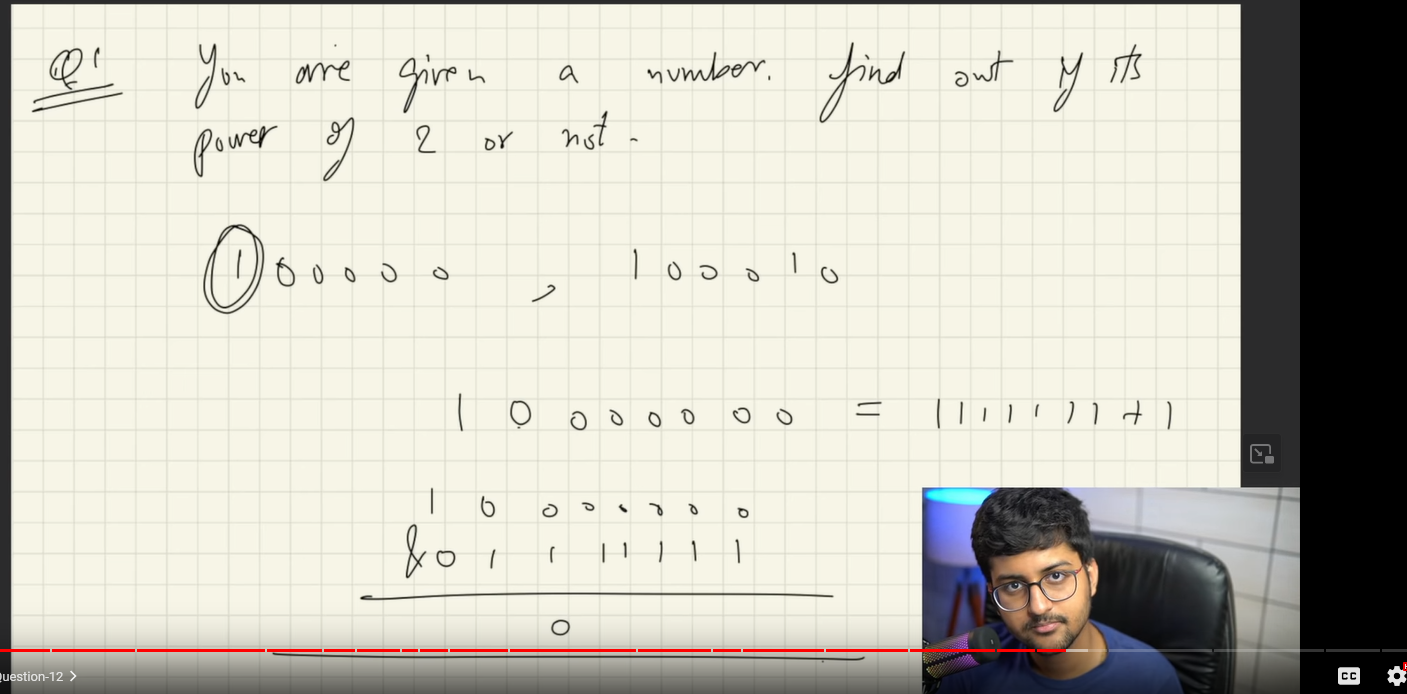 Q1 You are given a number. find out if its
power of 2 or not.
1 0 0 0 0 0 , 1 0 0 0 1 0
1 0 0 0 0 0 0 0 = 1 1 1 1 1 1 1 + 1
1 0 0 0 0 0 0 0
& 0 1 1 1 1 1 1 1
0
Question-12 >
CC